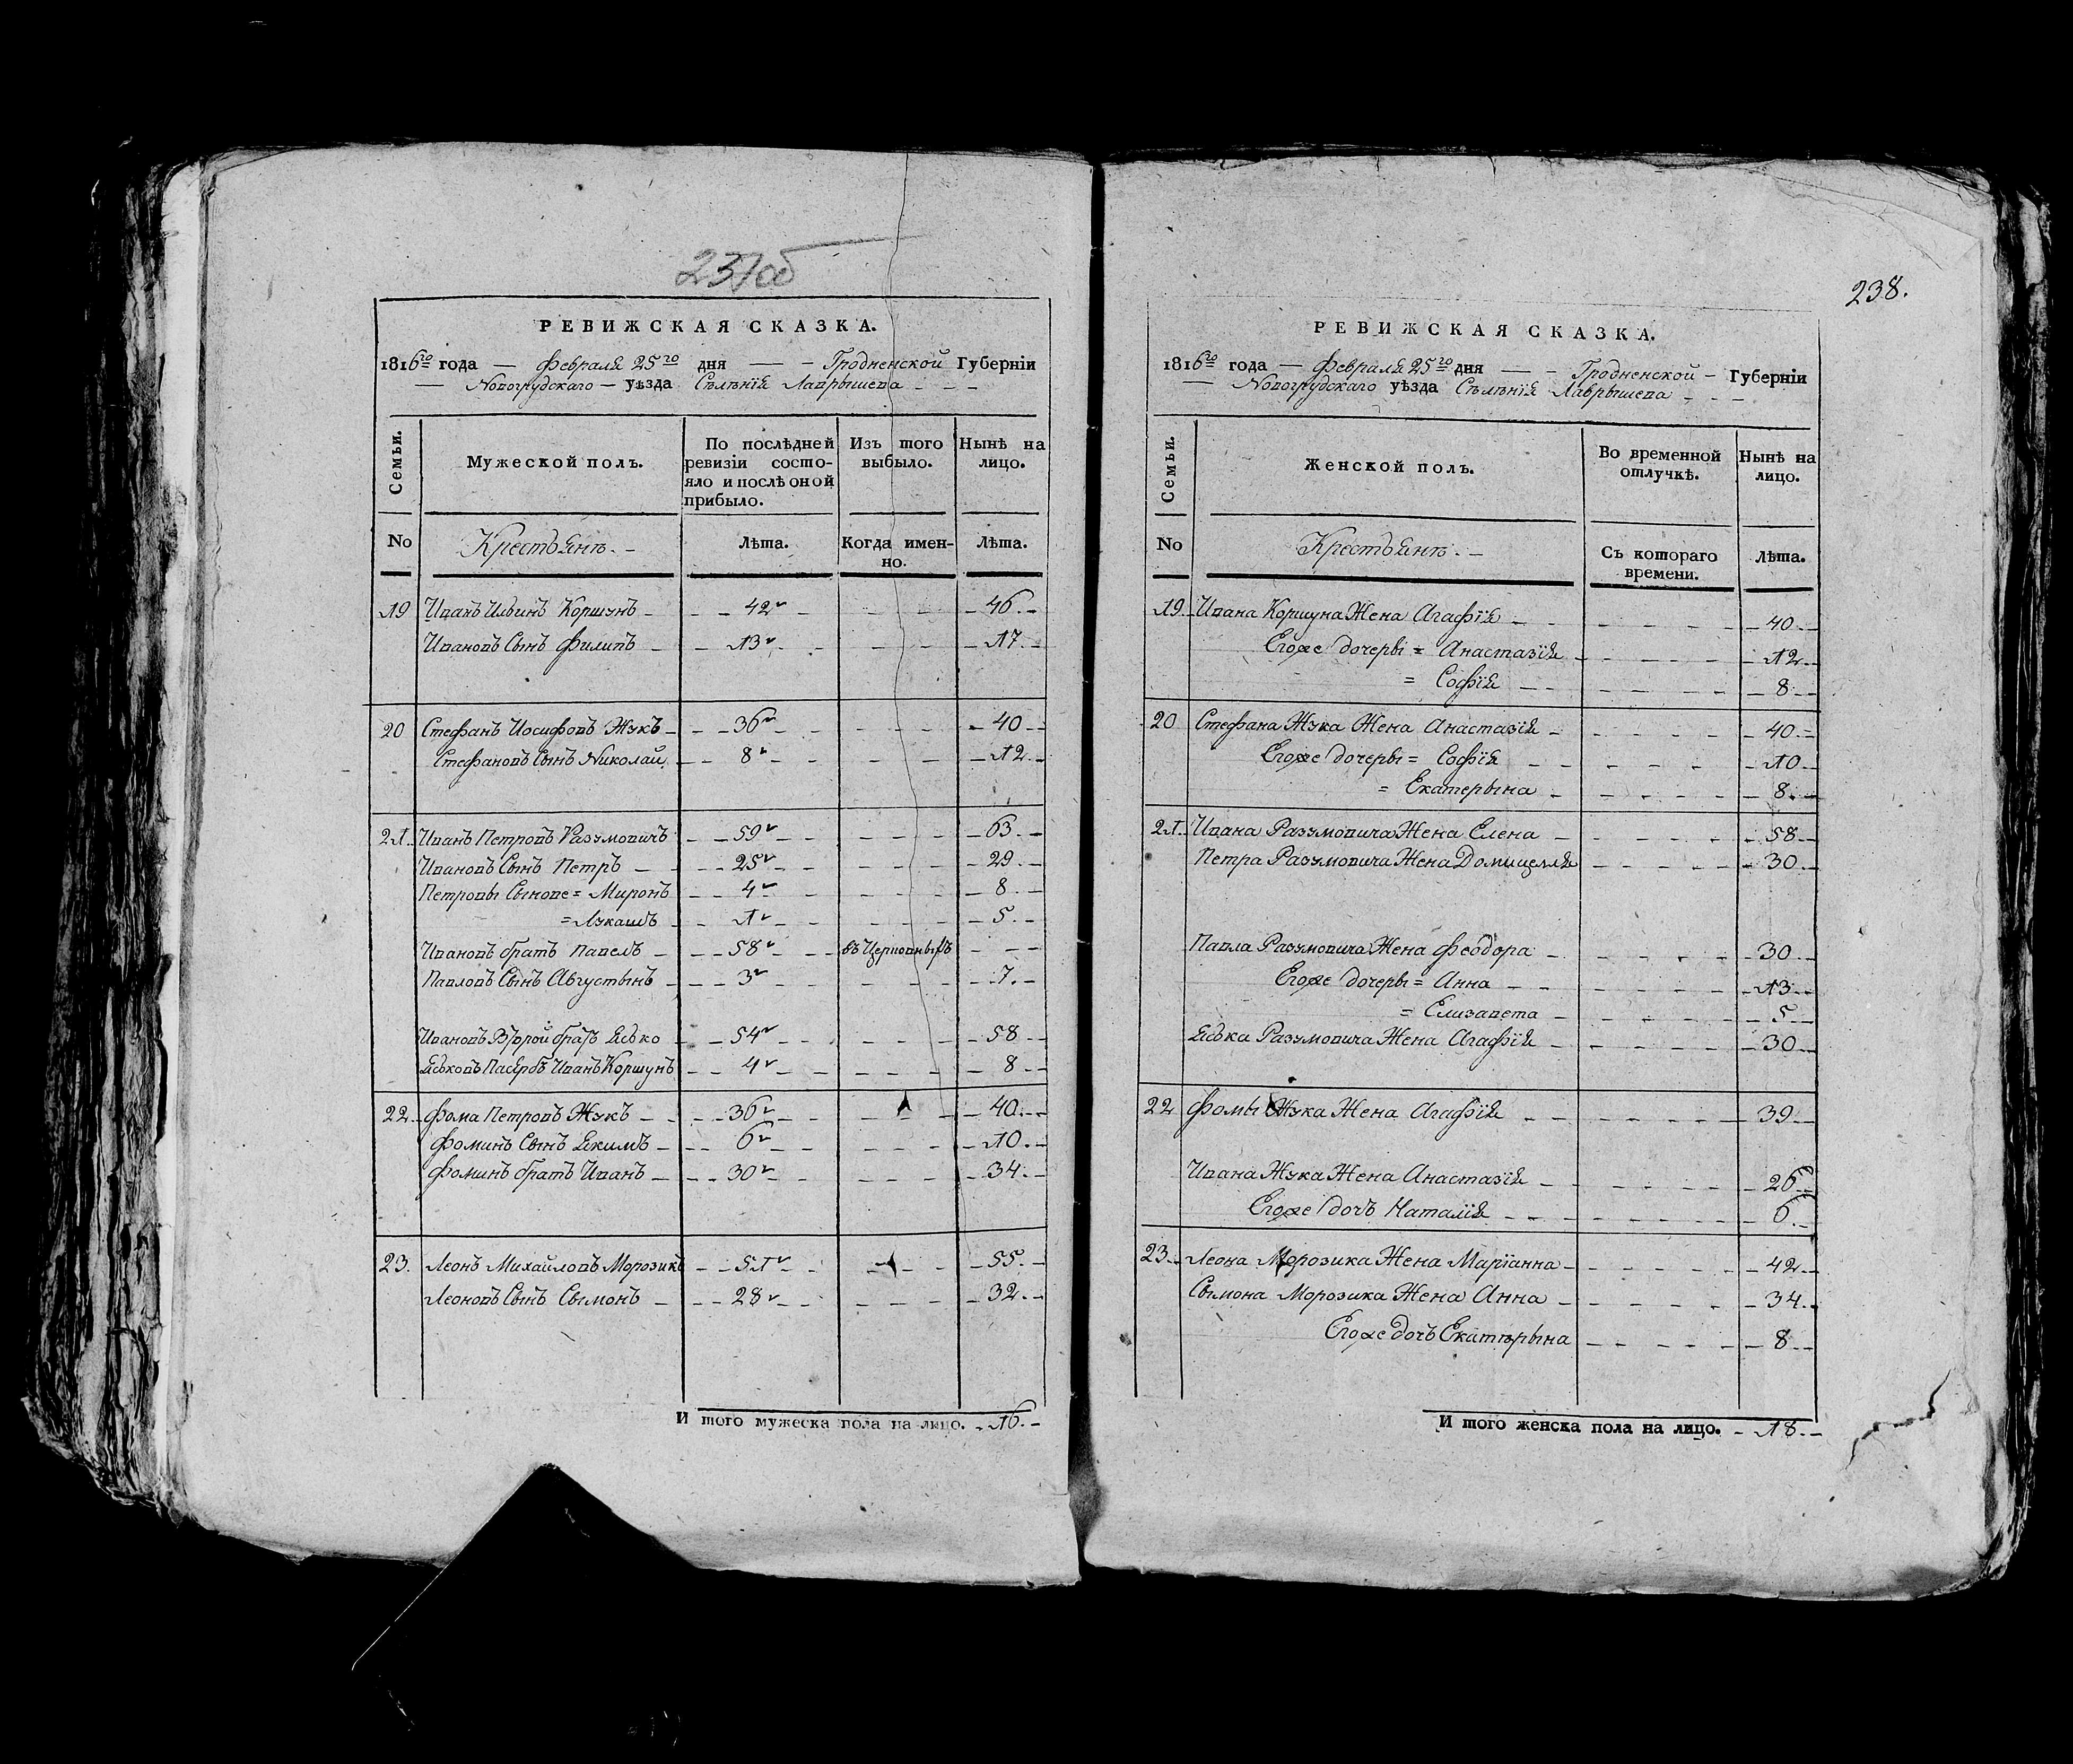 237об
РЕВИЖСКАЯ СКАЗКА.
1816го года — Февраля 25го дня — — Гродненской Губерніи
— Новогрудскаго — уѣзда Сѣлѣнія Лаврышева - - -
Семьи.
Мужеской полъ.
По послѣдней ревизіи состояло и послѣ оной прибыло.
Изъ того выбыло.
Нынѣ на лицо.
No
Крестьянъ. -
Лѣта.
Когда именно.
Лѣта.
19 Иванъ Ильинъ Коршунъ - 42 - 46. -
Ивановъ Сынъ Филипъ - 13 - 17. -
20 Стефанъ Иосифовъ Жукъ - 36 - 40 -
Стефановъ Сынъ Николай - 8 - 12. -
21. Иванъ Петровъ Разумовичъ - 59 - 63. -
Ивановъ Сынъ Петръ - 25 - 29. -
Петровы Сынове = Миронъ - 4 - 8. -
= Лукашъ - 1 - 5. -
Ивановъ братъ Павелъ - 58 - въ Церковныхъ - - -
Павловъ Сынъ Августынъ - 3 - 7. -
Ивановъ Второй братъ Яско - 54 - 58 -
Яськовъ Пасербъ Иванъ Коршунъ - 4 - 8 -
22. Фома Петровъ Жукъ - 36 - 40. -
Фоминъ Сынъ Якимъ - 6 - 10. -
Фоминъ братъ Иванъ - 30 - 34. -
23. Леонъ Михайловъ Морозикъ - 51 - 55. -
Леоновъ Сынъ Сымонъ - 28 - 32. -
И того мужеска пола на лицо. - 16. -
238.
РЕВИЖСКАЯ СКАЗКА.
1816го года — Февраля 25го дня — — Гродненской — Губерніи
— Новогрудскаго уѣзда Сѣлѣнія Лаврышева - - -
Семьи.
Женской полъ.
Во временной отлучкѣ.
Нынѣ на лицо.
No
Крестьянъ. -
Съ котораго времени.
Лѣта.
19. Ивана Коршуна Жена Агафія - 40. -
Егоже дочеры = Анастазія - 12. -
= Софія - 8. -
20 Стефана Жука Жена Анастазія - 40. -
Егоже дочеры = Софія - 10. -
= Екатерына - 8. -
21. Ивана Разумовича Жена Елена - 58. -
Петра Разумовича Жена Домицеля - 30. -
Павла Разумовича Жена Феодора - 30. -
Егоже дочеры = Анна - 13. -
= Елизавета - 5. -
Яська Разумовича Жена Агафія - 30. -
22 Фомы Жука Жена Агафія - 39. -
Ивана Жука Жена Анастазія - 26. -
Егоже дочъ Наталія - 6. -
23. Леона Морозика Жена Маріанна - 42. -
Сымона Морозика Жена Анна - 34. -
Егоже дочъ Екатѣрына - 8. -
И того женска пола на лицо. - 18. -